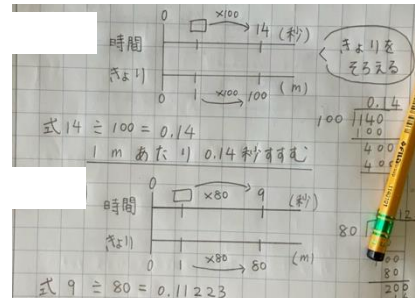 0 ×100 14 (秒)
時間
きょり
0 1 ×100 100 (m)
きょりを
そろえる
式 14 ÷ 100 = 0.14
1 m あたり 0.14 秒すすむ
0.14
100 140
100
400
400
0 ×80 9 (秒)
時間
きょり
0 1 ×80 80 (m)
式 9 ÷ 80 = 0.11223
80
80
200